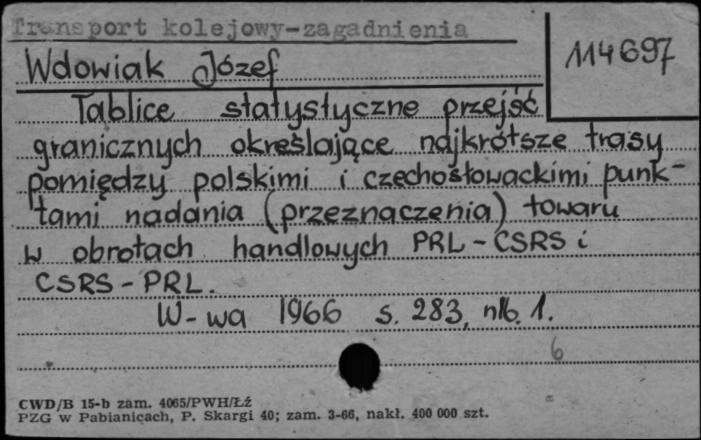 Transport kolejowy-zagadnienia
114697
Wdowiak Józef
Tablice statystyczne przejść
granicznych określające najkrótsze trasy
pomiędzy polskimi i czechosłowackimi punk-
tami nadania (przeznaczenia) towaru
w obrotach handlowych PRL - CSRS i
CSRS - PRL.
W-wa 1966 s. 283, nlb. 1.
6
CWD/B 15-b zam. 4065/PWH/Łź
PZG w Pabianicach, P. Skargi 40; zam. 3-66, nakł. 400 000 szt.